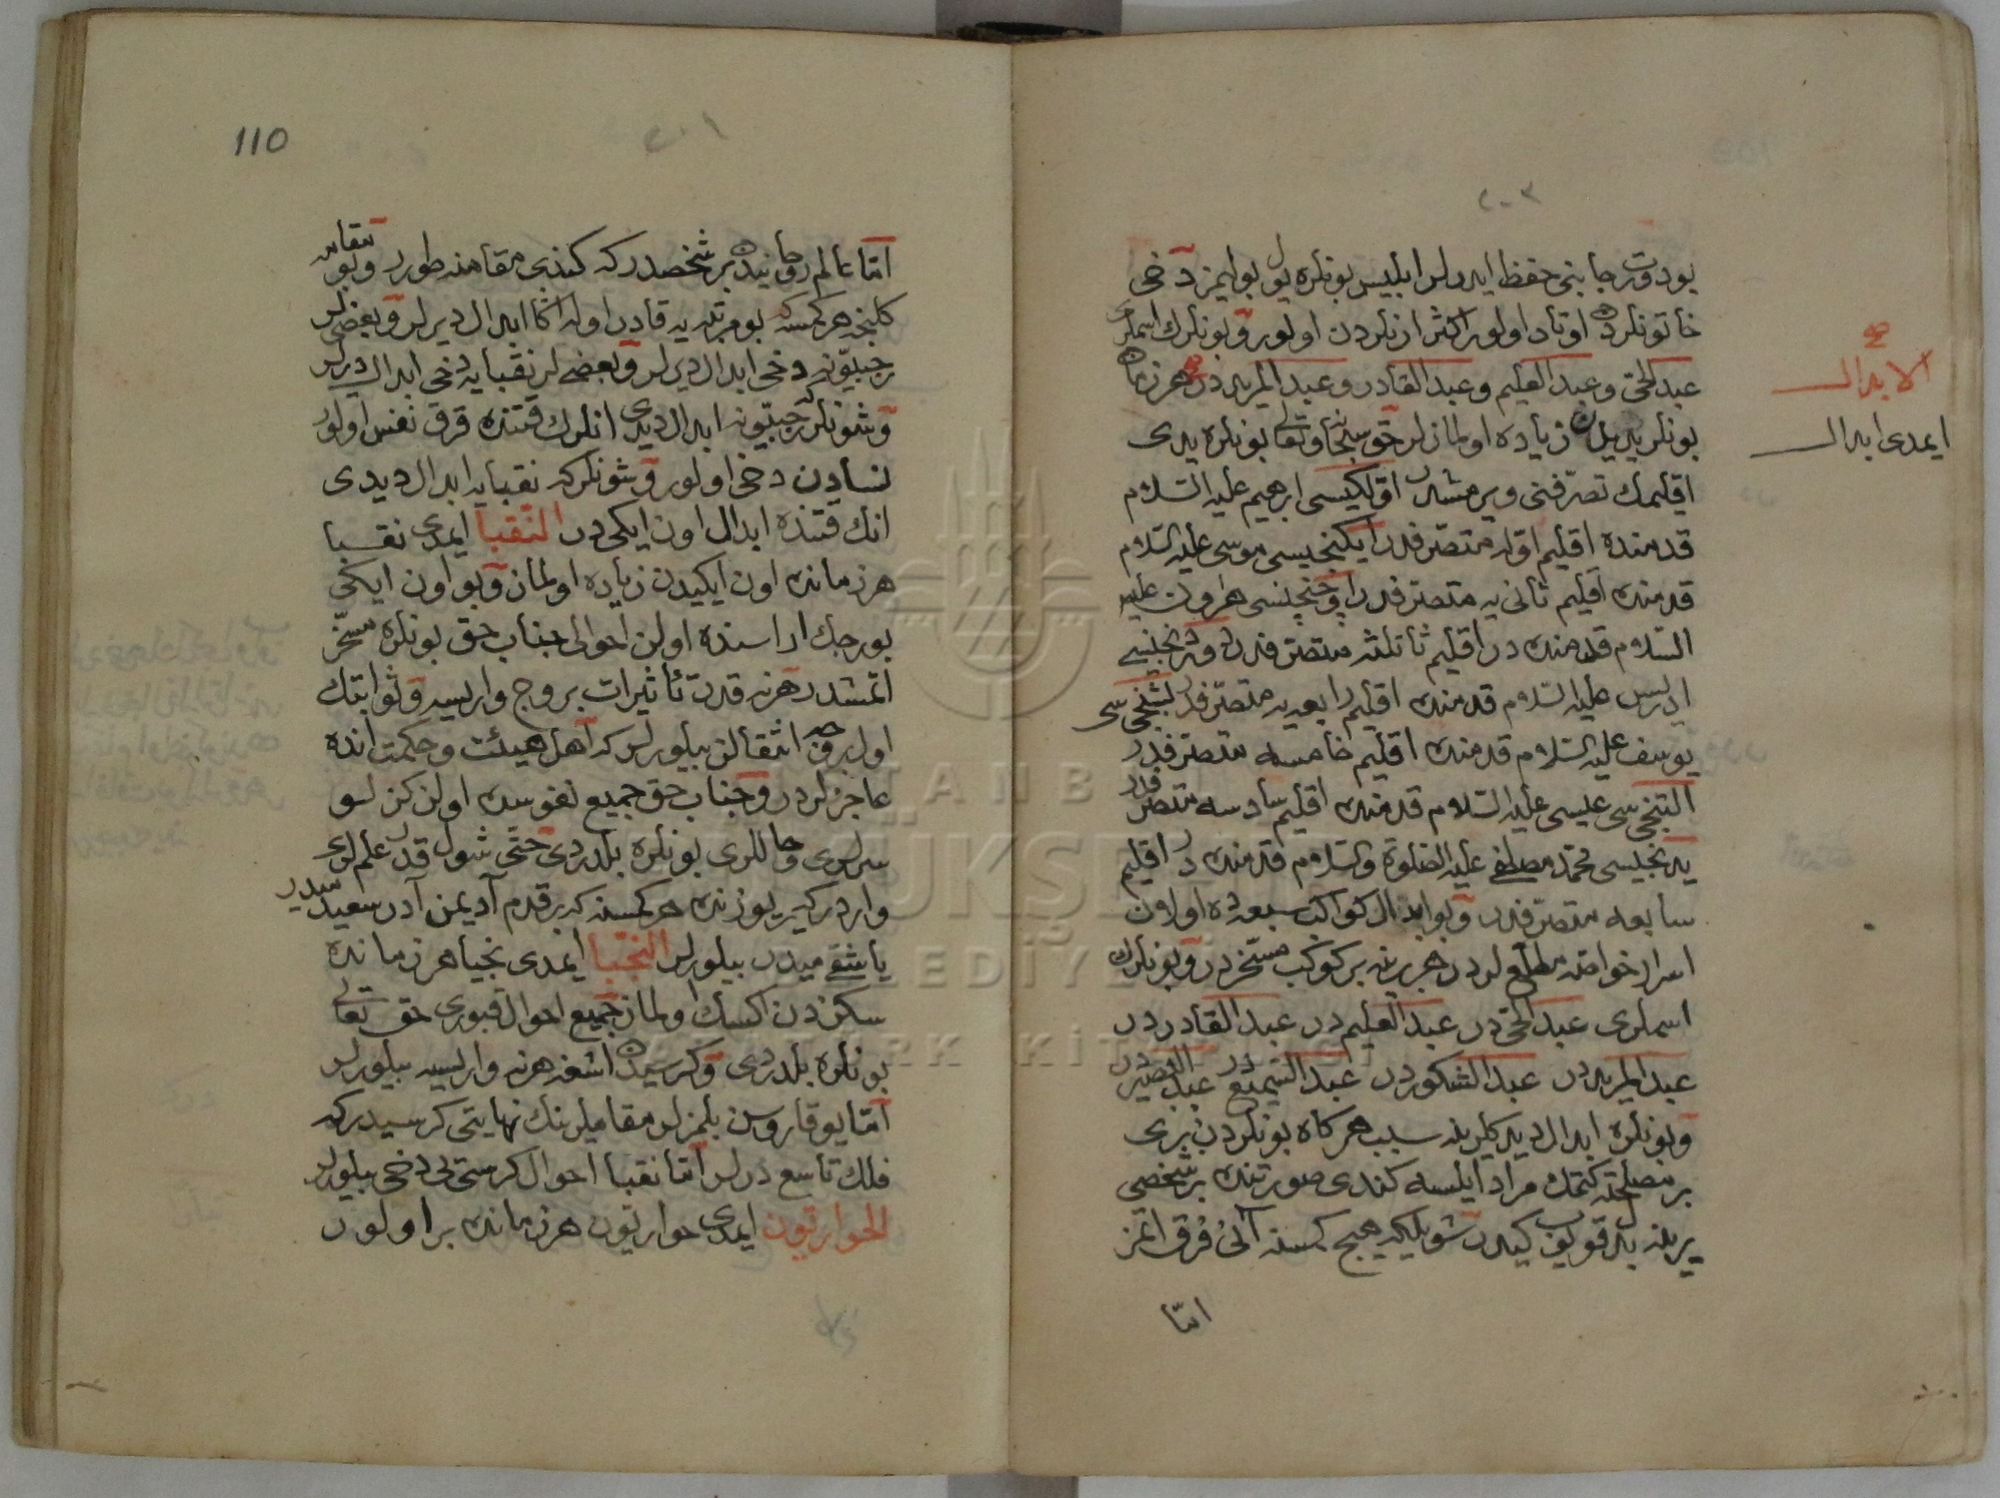 بو دورت جانبنى حفظ ايدرلر ابليس بونلره يول بوليمز دخى
خاتونلردن اوتاد اولور اكثر ازنلردن اولور و بونلرك اسملرى
عبد الحق و عبد العليم و عبد القادر و عبد المريددر هر زمان
بونلر يديدن زياده اولمازلر حق سبحانه و تعالى بونلره يدى
اقليمك تصرفنى ويرمشدر اولكيسى ابرهيم عليه السلام
قدمنده اقليم اوله متصرفدر ايكنجيسى موسى عليه السلام
قدمنده اقليم ثانى يه متصرفدر اوچنجيسى هارون عليه
السلام قدمنده در اقليم ثالثه متصرفدر دردنجيسى
ادريس عليه السلام قدمنده اقليم رابعه يه متصرفدر بشنجى سى
يوسف عليه السلام قدمنده اقليم خامسه متصرفدر
التنجى سى عيسى عليه السلام قدمنده اقليم سادسه متصرفدر
يدنجيسى محمد مصطفى عليه الصلوة والسلام قدمنده در اقليم
سابعه متصرفدر و بو ابدال كواكب سبعه ده اولان
اسرار خواصه مطلع لردر هر برينه بر كوكب مسخردر و بونلرك
اسملرى عبد الحى در عبد العليم در عبد القادر در
عبد المريد در عبد الشكور در عبد السميع در عبد البصير در
و بونلره ابدال ديدكلرينه سبب هر كاه بونلردن برى
بر مصلحته كتمك مراد ايلسه كندى صورتنده بر شخصى
يرينه بدل قويوب كيدر شويله كه هيچ كمسنه آنى فرق اتمز
اما
الابدال
ايمدى ابدال
110
اما عالم روحانيدن بر شخصدر كه كندى مقامنه طورر و بو مقامه
كلنجه هر كمسه كه بو مرتبه يه قادر اوله اكا ابدال ديرلر و بعضيلر
رجبيونه دخى ابدال ديرلر و بعضيلر نقبايه دخى ابدال ديرلر
و شونلر كه رجبيونه ابدال ديدى انلرك قتنده قرق نفس اولور
نسادن دخى اولور و شونلر كه نقبايه ابدال ديدى
انك قتنده ابدال اون ايكى در النقبا ايمدى نقبا
هر زمانده اون ايكيدن زياده اولماز و بو اون ايكى
بورجك اراسنده اولن احوالى جناب حق بونلره مسخر
اتمشدر هر نه قدر تأثيرات بروج وار ايسه و ثوابتك
اول برجه انتقالن بيلورلر كه اهل هيئت و حكمت انده
عاجزلردر و جناب حق جميع نفوسده اولن كزلو
سرلرى و حاللرى بونلره بلدردى حتى شول قدر علملرى
واردر كه ير يوزنده هر كمسنه كه بر قدم آديمن آدر سعيد ميدر
يا شقى ميدر بيلورلر النجبا ايمدى نجبا هر زمانده
سكزدن اكسك اولماز جميع احوال قبورى حق تعالى
بونلره بلدردى و كرسيدن اشغه هر نه وار ايسه بيلورلر
اما يوقاروسن بلمزلر مقاملرينك نهايتى كرسيدر كه
فلك تاسع درلر اما نقبا احوال كرسيى دخى بيلورلر
الحواريون ايمدى حواريون هر زمانده بر اولور